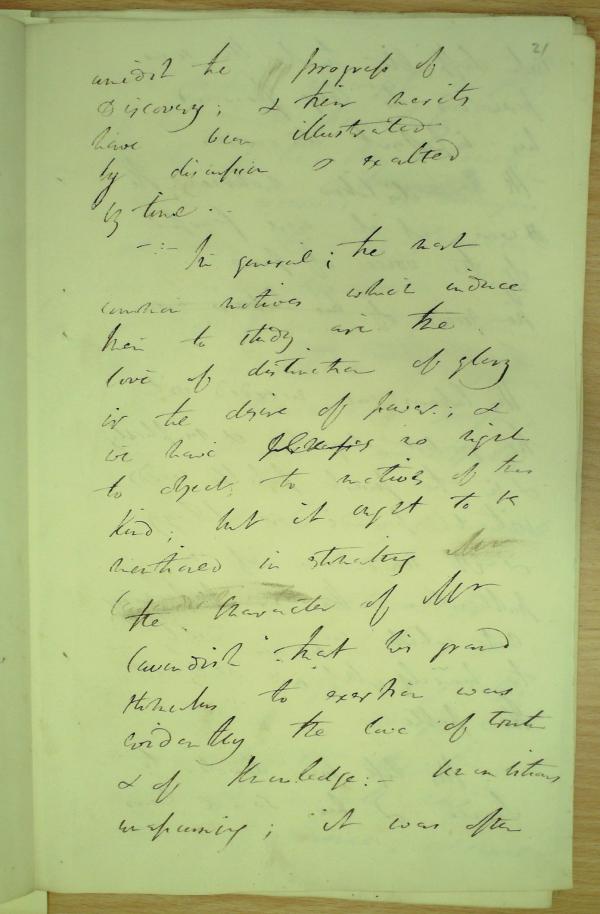 21
amidst the progress of
Discovery; & their merits
have been illustrated
by discussion & exalted
by time.
In general; the most
common motives which induce
men to study are the
love of distinction of glory
or the desire of power; & 
we have no right
to object to motives of this
kind; but it ought to be
mentioned in estimating Mr
the Character of Mr
Cavendish that his grand
stimulus to exertion was
evidently the love of truth
& of Knowledge:- unambitious
unassuming; it was often